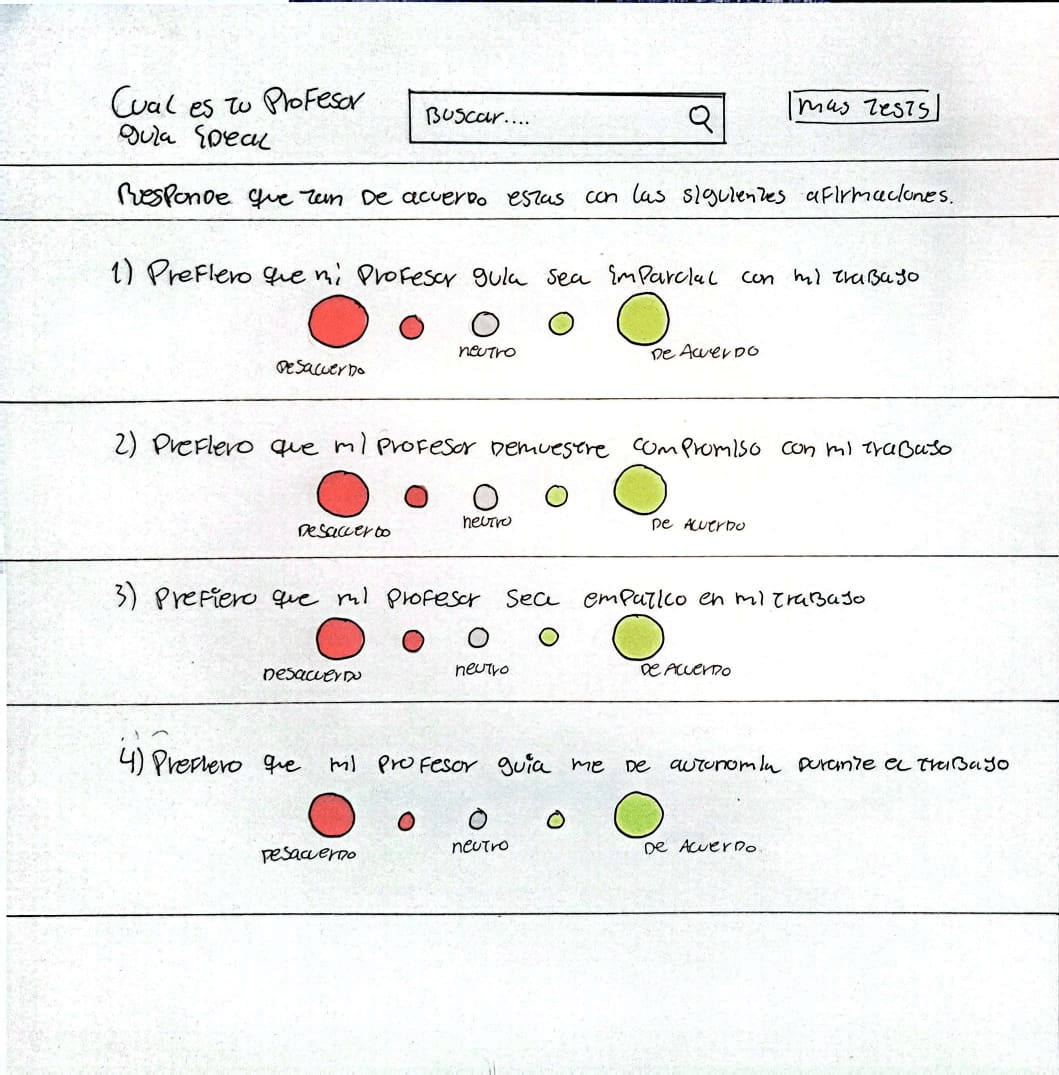 Cual es tu Profesor
guia ideal
Buscar....
mas tests
Responde que tan de acuerdo estas con las siguientes afirmaciones.
1) Prefiero que mi profesor guia sea imparcial con mi trabajo
Desacuerdo
neutro
De Acuerdo
2) Prefiero que mi profesor demuestre compromiso con mi trabajo
Desacuerdo
neutro
De Acuerdo
3) Prefiero que mi profesor sea empatico en mi trabajo
Desacuerdo
neutro
De Acuerdo
4) Prefiero que mi profesor guía me de autonomia durante el trabajo
Desacuerdo
neutro
De Acuerdo